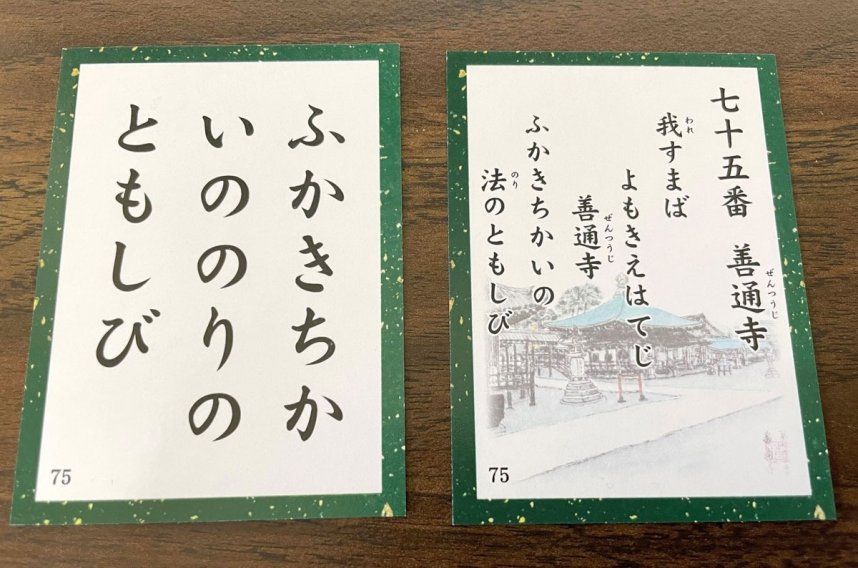 ふかきちか
いののりの
ともしび
75
七十五番 善通寺
ぜんつうじ
我すまば
われ
よもきえはてじ
善通寺
ぜんつうじ
ふかきちかいの
法のともしび
のり
75